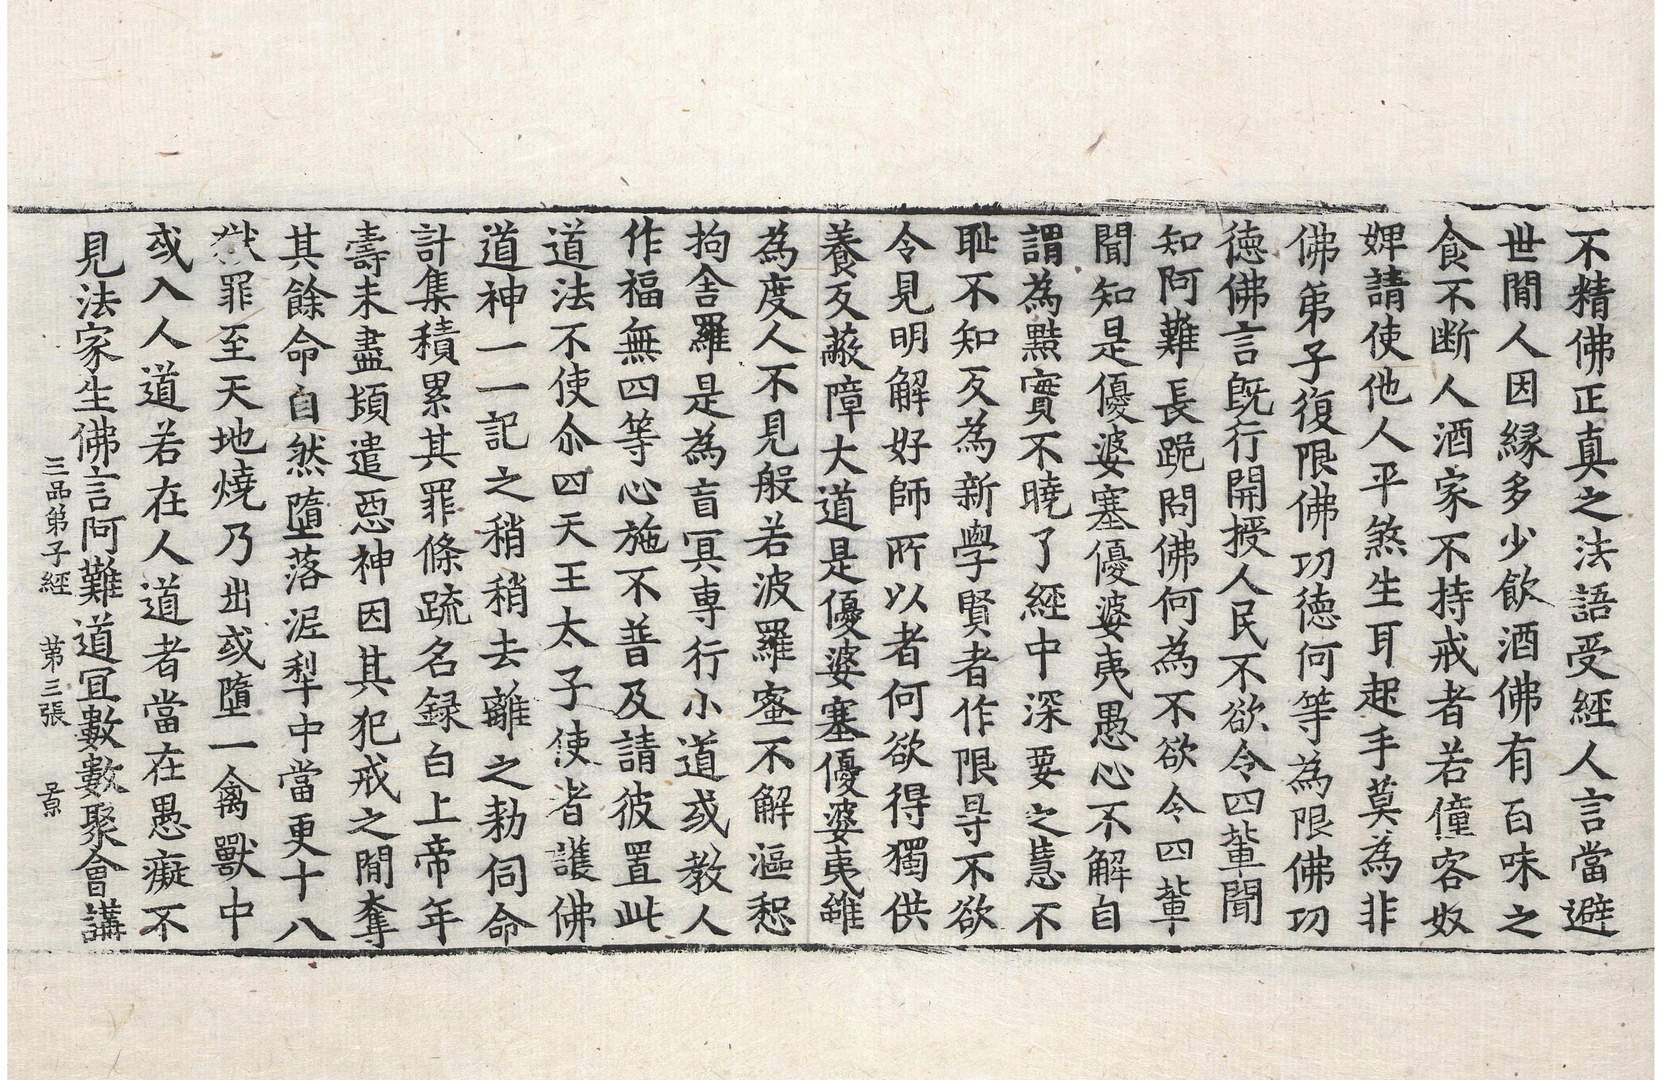 不精佛正真之法語受經人言當避
世間人因緣多少飮酒佛有百味之
食不断人酒家不持戒者若僮客奴
婢請使他人平煞生耳起手莫為非
佛弟子復限佛功德何等為限佛功
德佛言旣行開授人民不欲令四輩聞
知阿難長跪問佛何為不欲令四輩
聞知是優婆塞優婆夷愚心不解自
謂為黠實不曉了經中深要之慧不
耻不知反為新學賢者作限㝵不欲
令見明解好師所以者何欲得獨供
養反蔽障大道是優婆塞優婆夷雖
為度人不見般若波羅蜜不解漚惒
拘舍羅是為盲冥專行小道或教人
作福無四等心施不普及請彼置此
道法不使尒四天王太子使者護佛
道神一一記之稍稍去離之勑伺命
計集積累其罪條疏名録白上帝年
壽未盡頃遣惡神因其犯戒之閒奪
其餘命自然墮落泥犁中當更十八
獄罪至天地燒乃出或墮一禽獸中
或入人道若在人道者當在愚癡不
見法家生佛言阿難道冝數數聚會講
三品弟子經 第三張 景